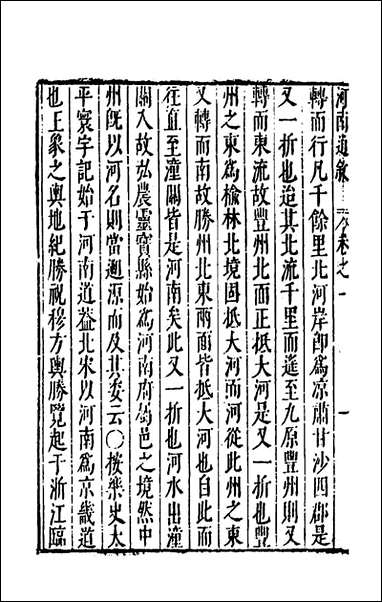 河南通彙　卷之一　一
轉而行凡千餘里北河岸卽爲凉肅甘沙四郡是
又一折也迨其北流千里而遥至九原豐州則又
轉而東流故豐州北面正抵大河是又一折也豐
州之東爲榆林北境固抵大河而河從此州之東
又轉而南故勝州北東兩面皆抵大河也自此而
往直至潼關皆是河南矣此又一折也河水出潼
關入故弘農靈寶縣始爲河南府屬邑之境然中
州旣以河名則當遡源而及其委云〇按樂史太
平寰宇記始于河南道葢北宋以河南爲京畿道
也王象之輿地紀勝祝穆方輿勝覽起于浙江臨